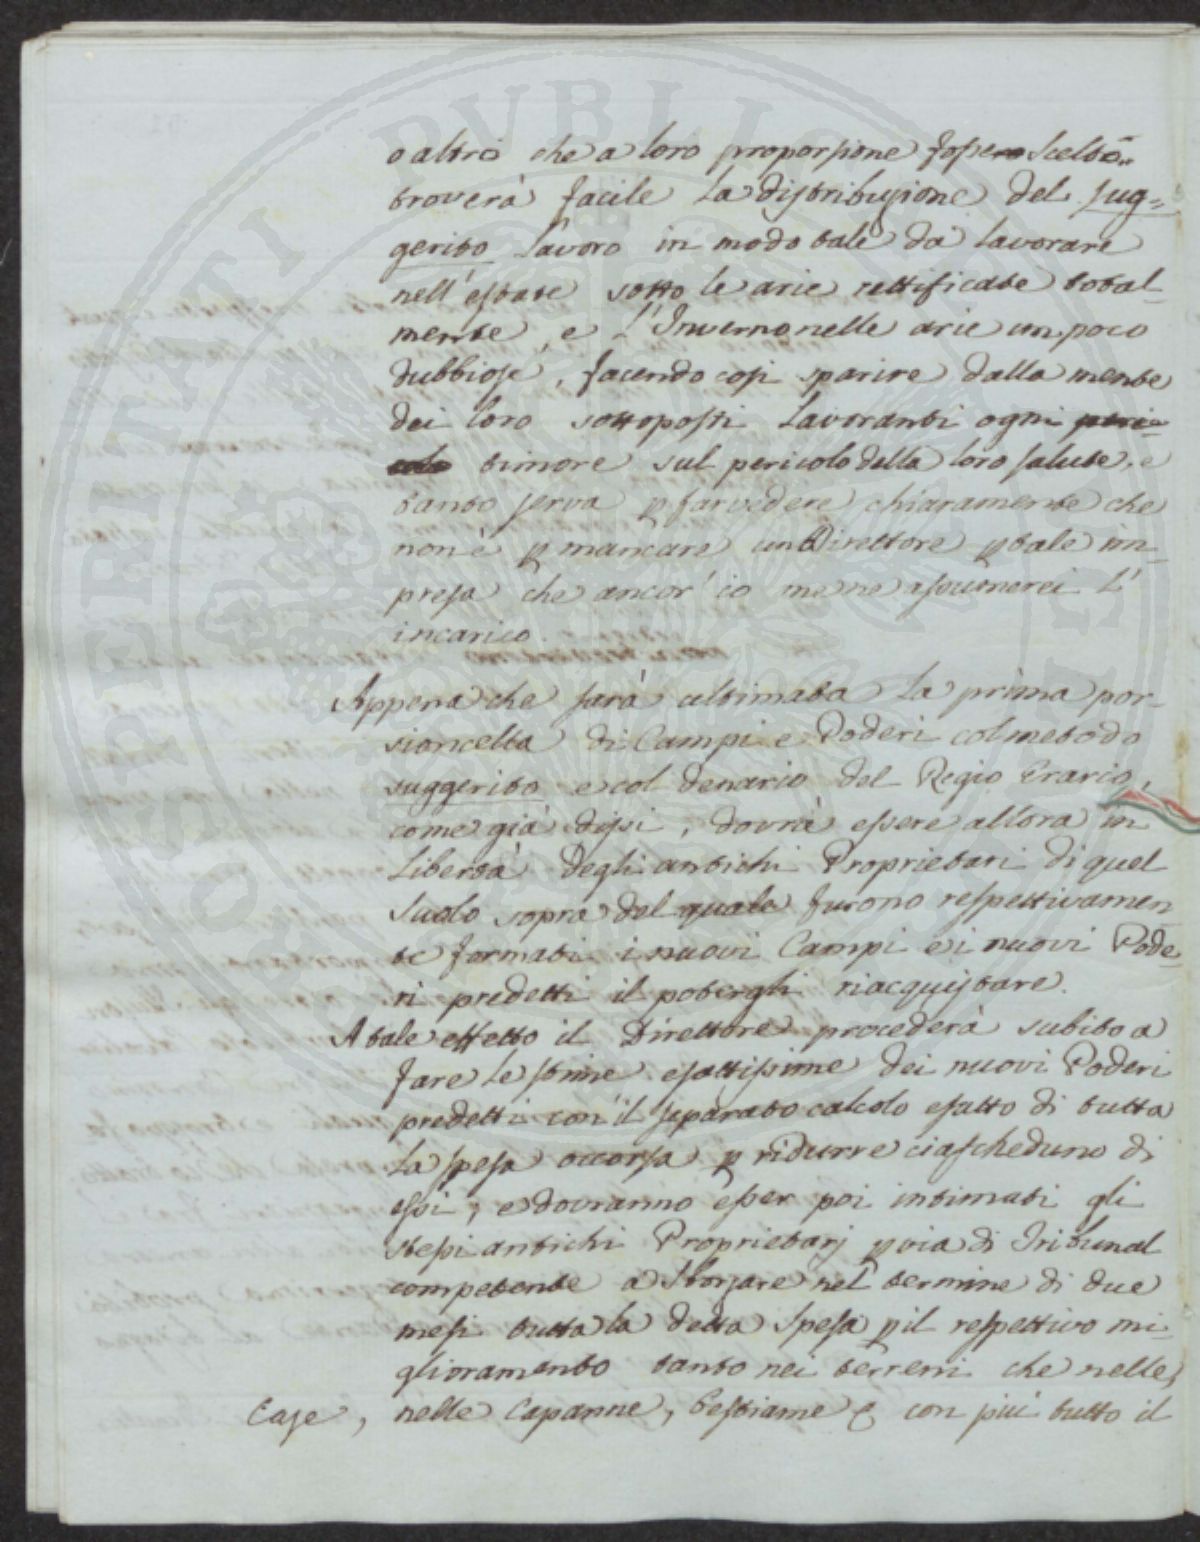 o altro che a loro proporsione fosse scelto
troverà facile la distribusione del sug=
gerito lavoro in modo tale da lavorare
nell'estate sotto le arie rettificate total-
mente, e l'Inverno nelle arie un poco
dubbiose, facendo così sparire dalla mente
dei loro sottoposti Lavoranti ogni peri-
colo timore sul pericolo della loro salute, e
tanto serva p far vedere chiaramente che
non è p mancare un Direttore p tale im-
presa che ancor' io me ne assumerei l'
incarico.
Appena che sarà ultimata la prima por-
sioncella di Campi e Poderi col metodo
suggerito e col denario del Regio Erario,
come già dissi, dovrà essere allora in
Libertà degli antichi Proprietari di quel
suolo sopra del quale furono respettivamen
te formati i nuovi Campi e i nuovi Pode-
ri predetti il potergli riacquistare.
A tale effetto il Direttore procederà subito a
fare le stime esattissime dei nuovi Poderi
predetti con il separato calcolo esatto di tutta
la spesa occorsa p ridurre ciascheduno di
essi, e dovranno esser poi intimati gli
stessi antichi Proprietarj p via di Tribunal
competente a sborsare nel termine di due
mesi tutta la detta spesa p il respettivo mi-
glioramento tanto nei terreni che nelle
Case, nelle Capanne, bestiame e con più tutto il
OSPERITATI PUBLICAE